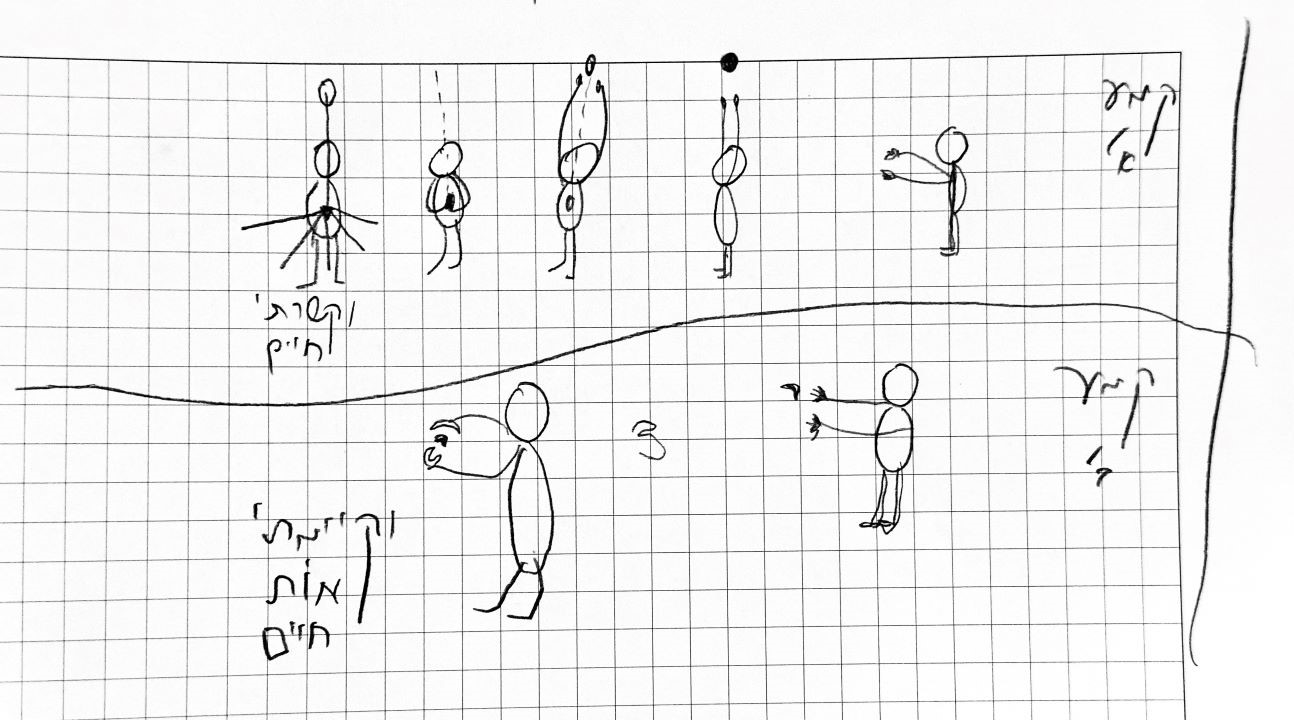 קמע
א'
וקשרתי
חיים
קמע
ב'
וקיימתי
מוֹת
חיים